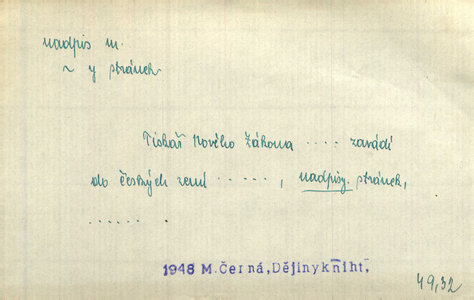 nadpis m.
~ y stránek
Tiskař Nového Zákona .... zavádí
do českých zemí ....., nadpisy stránek,
......
1948 M.Černá, Dějiny kniht.
49,32